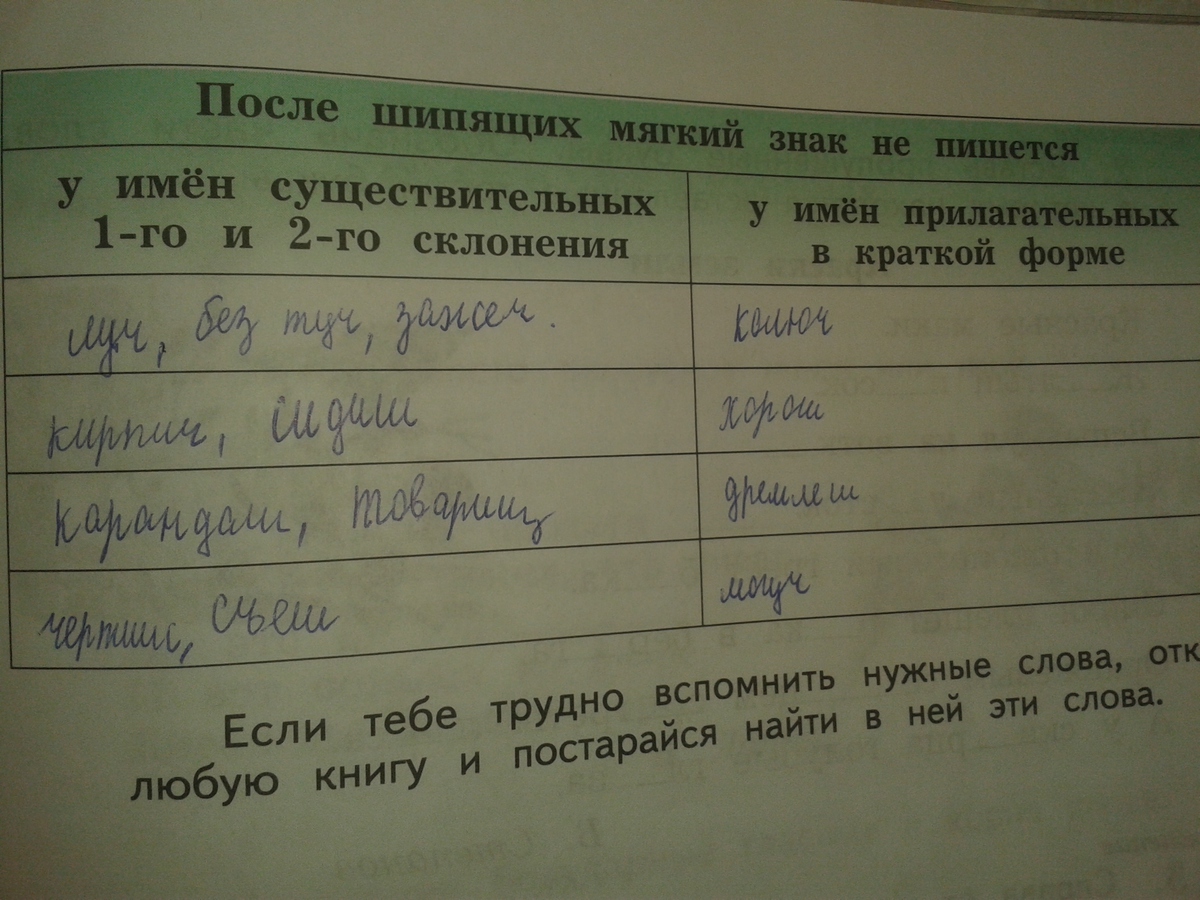 После шипящих мягкий знак не пишется
у имён существительных
1-го и 2-го склонения
у имён прилагательных
в краткой форме
луч, без туч, зажеч.
колюч
кирпич, сидиш
хорош
карандаш, товарищ
дремлеш
чертиш, съеш
могуч
Если тебе трудно вспомнить нужные слова, отк
любую книгу и постарайся найти в ней эти слова.